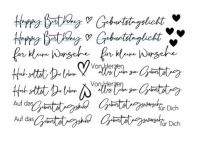 Happy Birthday Geburtstagslicht
Happy Birthday Geburtstagslicht
für kleine Wünsche für kleine Wünsche
Von Herzen
Hab selbst Du leben alles Liebe zum Geburtstag
Von Herzen
Hab selbst Du leben alles Liebe zum Geburtstag
Auf das Geburtstagskind Geburtstagswunsch für Dich
Auf das Geburtstagskind Geburtstagswunsch für Dich